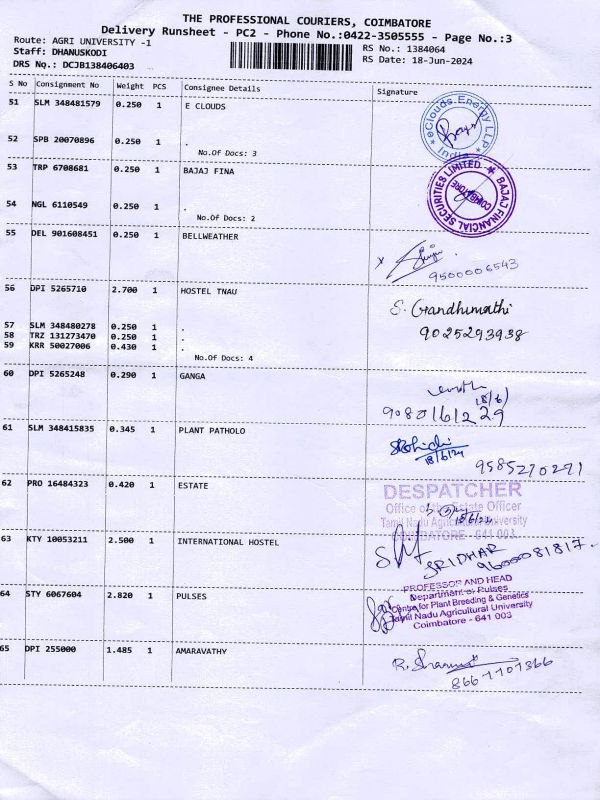 THE PROFESSIONAL COURIERS, COIMBATORE
Delivery Runsheet - PC2 - Phone No.:0422-3505555 - Page No.:3
Route: AGRI UNIVERSITY -1 RS No.: 1384064
Staff: DHANUSKODI RS Date: 18-Jun-2024
DRS No.: DCJB138406403
S No Consignment No Weight PCS Consignee Details Signature
51 SLM 348481579 0.250 1 E CLOUDS
eClouds Energy LLP
India
52 SPB 20070896 0.250 1 .
No.Of Docs: 3
53 TRP 6708681 0.250 1 BAJAJ FINA
BAJAJ FINANCIAL SECURITIES LIMITED
COIMBATORE
54 NGL 6110549 0.250 1 .
No.Of Docs: 2
55 DEL 901608451 0.250 1 BELLWEATHER
9500006543
56 DPI 5265710 2.700 1 HOSTEL TNAU
S. Gandhimathi
9025293938
57 SLM 348480278 0.250 1 .
58 TRZ 131273470 0.250 1 .
59 KRR 50027006 0.430 1 .
No.Of Docs: 4
60 DPI 5265248 0.290 1 GANGA
18/6/
9080161229
61 SLM 348415835 0.345 1 PLANT PATHOLO
18/6/24
9585270271
62 PRO 16484323 0.420 1 ESTATE
DESPATCHER
Office of the Estate Officer
Tamil Nadu Agricultural University
COIMBATORE - 641 003
63 KTY 10053211 2.500 1 INTERNATIONAL HOSTEL
SRIDHAR
9600081817.
64 STY 6067604 2.820 1 PULSES
PROFESSOR AND HEAD
Department of Pulses
Centre for Plant Breeding & Genetics
Tamil Nadu Agricultural University
Coimbatore - 641 003
65 DPI 255000 1.485 1 AMARAVATHY
8667107366